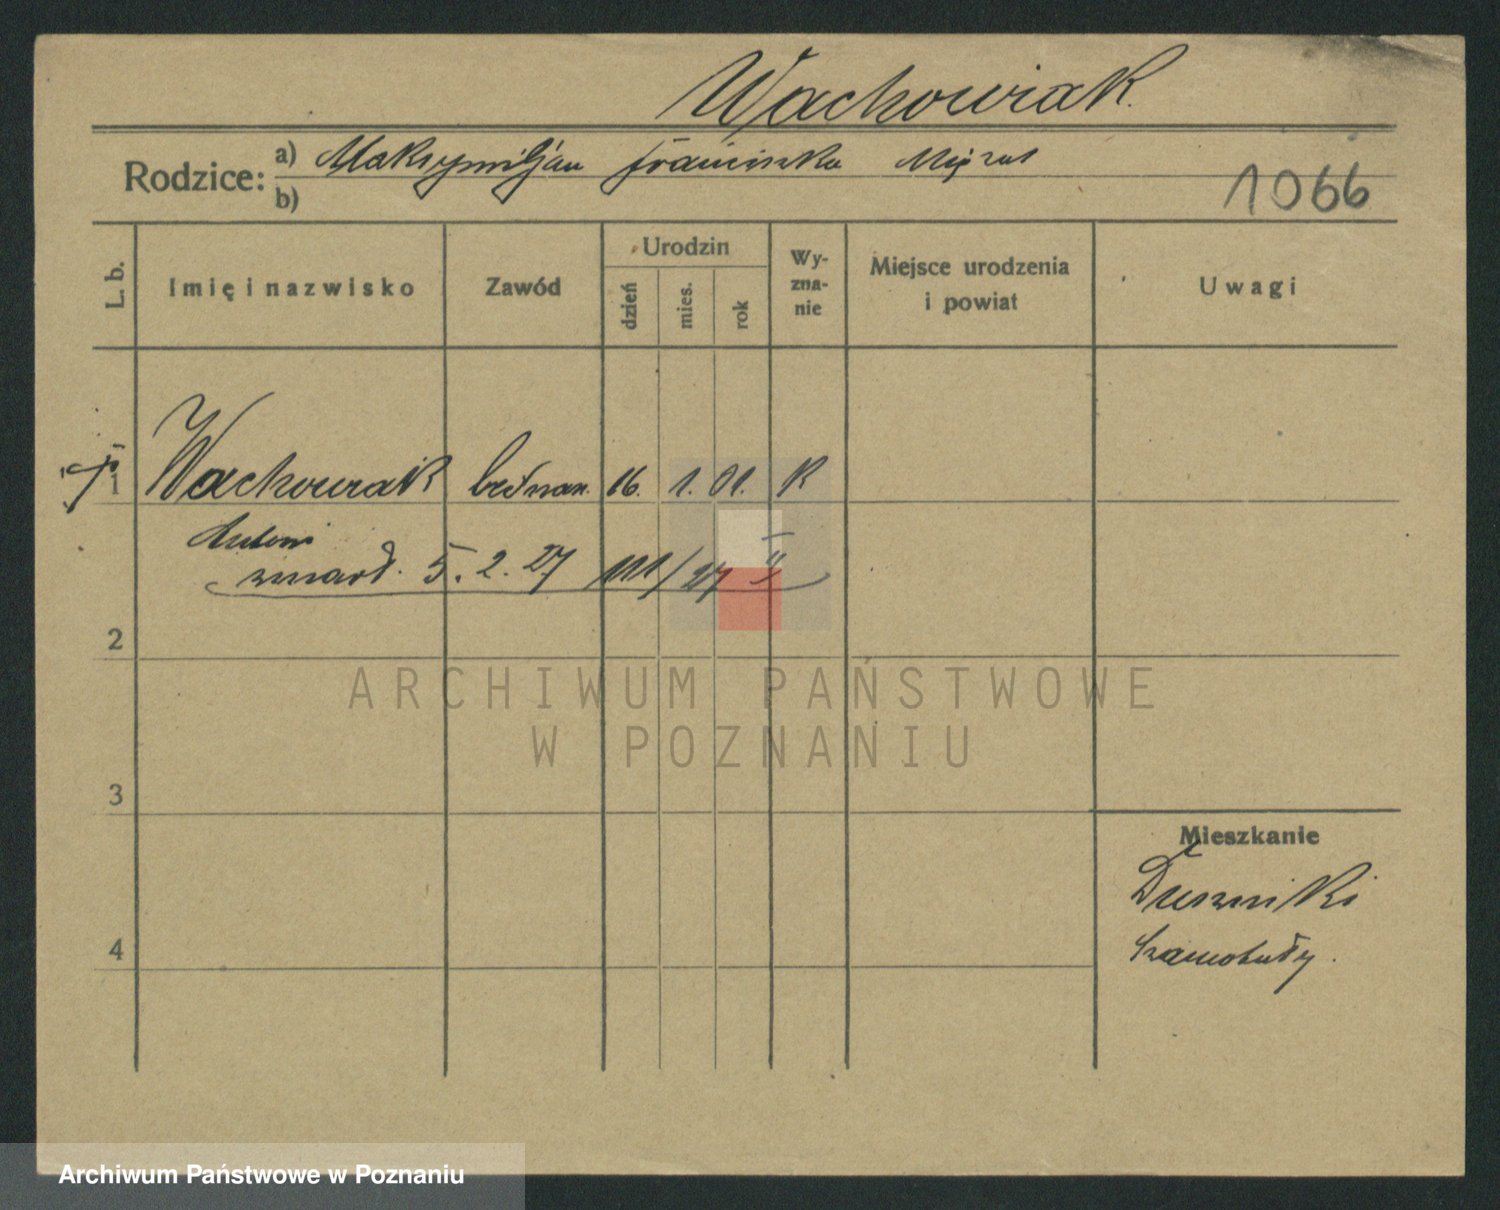 Wachowiak.
Rodzice: a) Maksymiljan Franciszka
b)
1066
L. b.
Imię i nazwisko
Zawód
Urodzin
dzień
mies.
rok
Wy-
zna-
nie
Miejsce urodzenia
i powiat
Uwagi
1 Wachowiak bednarz. 16. 1. 01. K
Antoni
zmarł. 5. 2. 27 111/27 II
2
3
4
Mieszkanie
Duszniki
Szamotuły.
ARCHIWUM PAŃSTWOWE
W POZNANIU
Archiwum Państwowe w Poznaniu